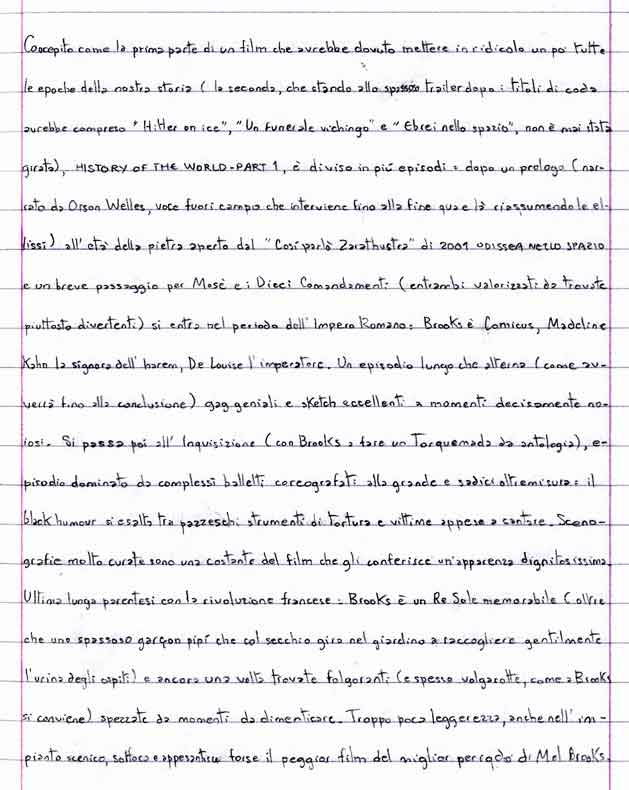 Concepito come la prima parte di un film che avrebbe dovuto mettere in ridicolo un po' tutte
le epoche della nostra storia (la seconda, che stando allo spassoso trailer dopo i titoli di coda
avrebbe compreso "Hitler on ice", "Un funerale vichingo" e "Ebrei nello spazio", non è mai stata
girata), HISTORY OF THE WORLD-PART 1, è diviso in più episodi: dopo un prologo (nar-
rato da Orson Welles, voce fuori campo che interviene fino alla fine qua e là riassumendo le el-
lissi) all'età della pietra aperto dal "Così parlò Zarathustra" di 2001 ODISSEA NELLO SPAZIO
e un breve passaggio per Mosè e i Dieci Comandamenti (entrambi valorizzati da trovate
piuttosto divertenti) si entra nel periodo dell'Impero Romano: Brooks è Comicus, Madeline
Kahn la signora dell'harem, De Louise l'imperatore. Un episodio lungo che alterna (come av-
verrà fino alla conclusione) gag geniali e sketch eccellenti a momenti decisamente no-
iosi. Si passa poi all'Inquisizione (con Brooks a fare un Torquemada da antologia), e-
pisodio dominato da complessi balletti coreografati alla grande e sadici oltremisura: il
black humour si esalta tra pazzeschi strumenti di tortura e vittime appese a cantare. Sceno-
grafie molto curate sono una costante del film che gli conferisce un'apparenza dignitosissima.
Ultima lunga parentesi con la rivoluzione francese: Brooks è un Re Sole memorabile (oltre
che uno spassoso garçon pipí che col secchio gira nel giardino a raccogliere gentilmente
l'urina degli ospiti) e ancora una volta trovate folgoranti (e spesso volgarotte, come a Brooks
si conviene) spezzate da momenti da dimenticare. Troppo poca leggerezza, anche nell'im-
pianto scenico, soffoca e appesantisce forse il peggior film del miglior periodo di Mel Brooks.